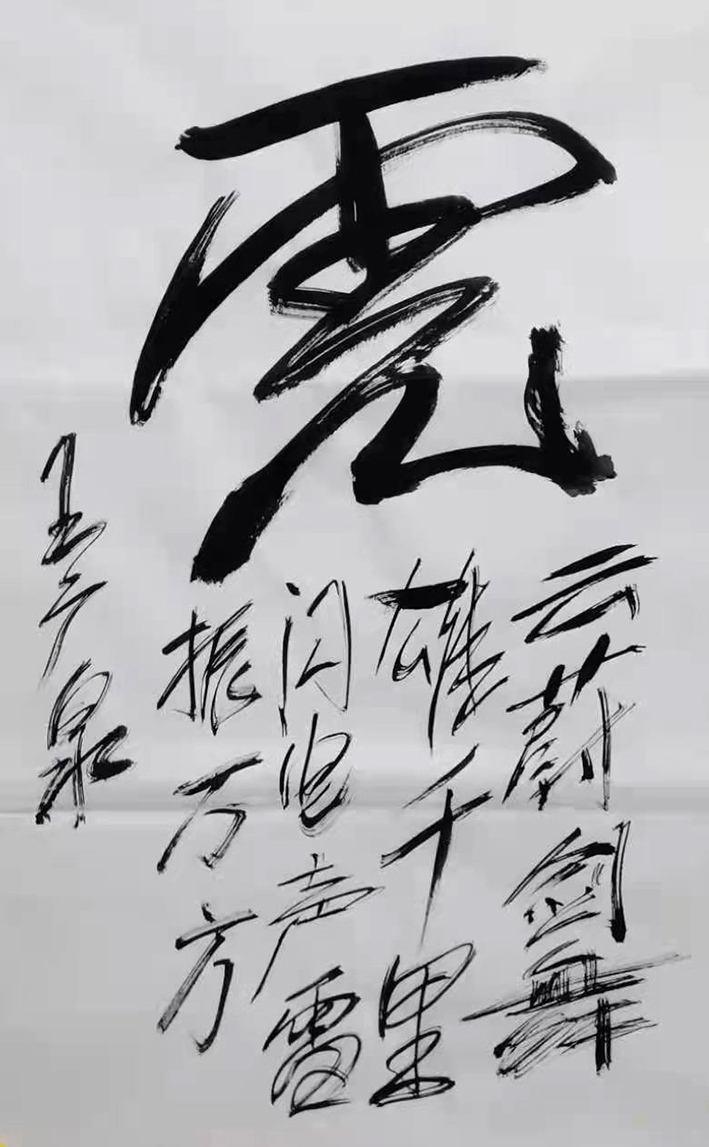 云蔚剑舞
雄千里
闪电声雷
振万方
王广泉